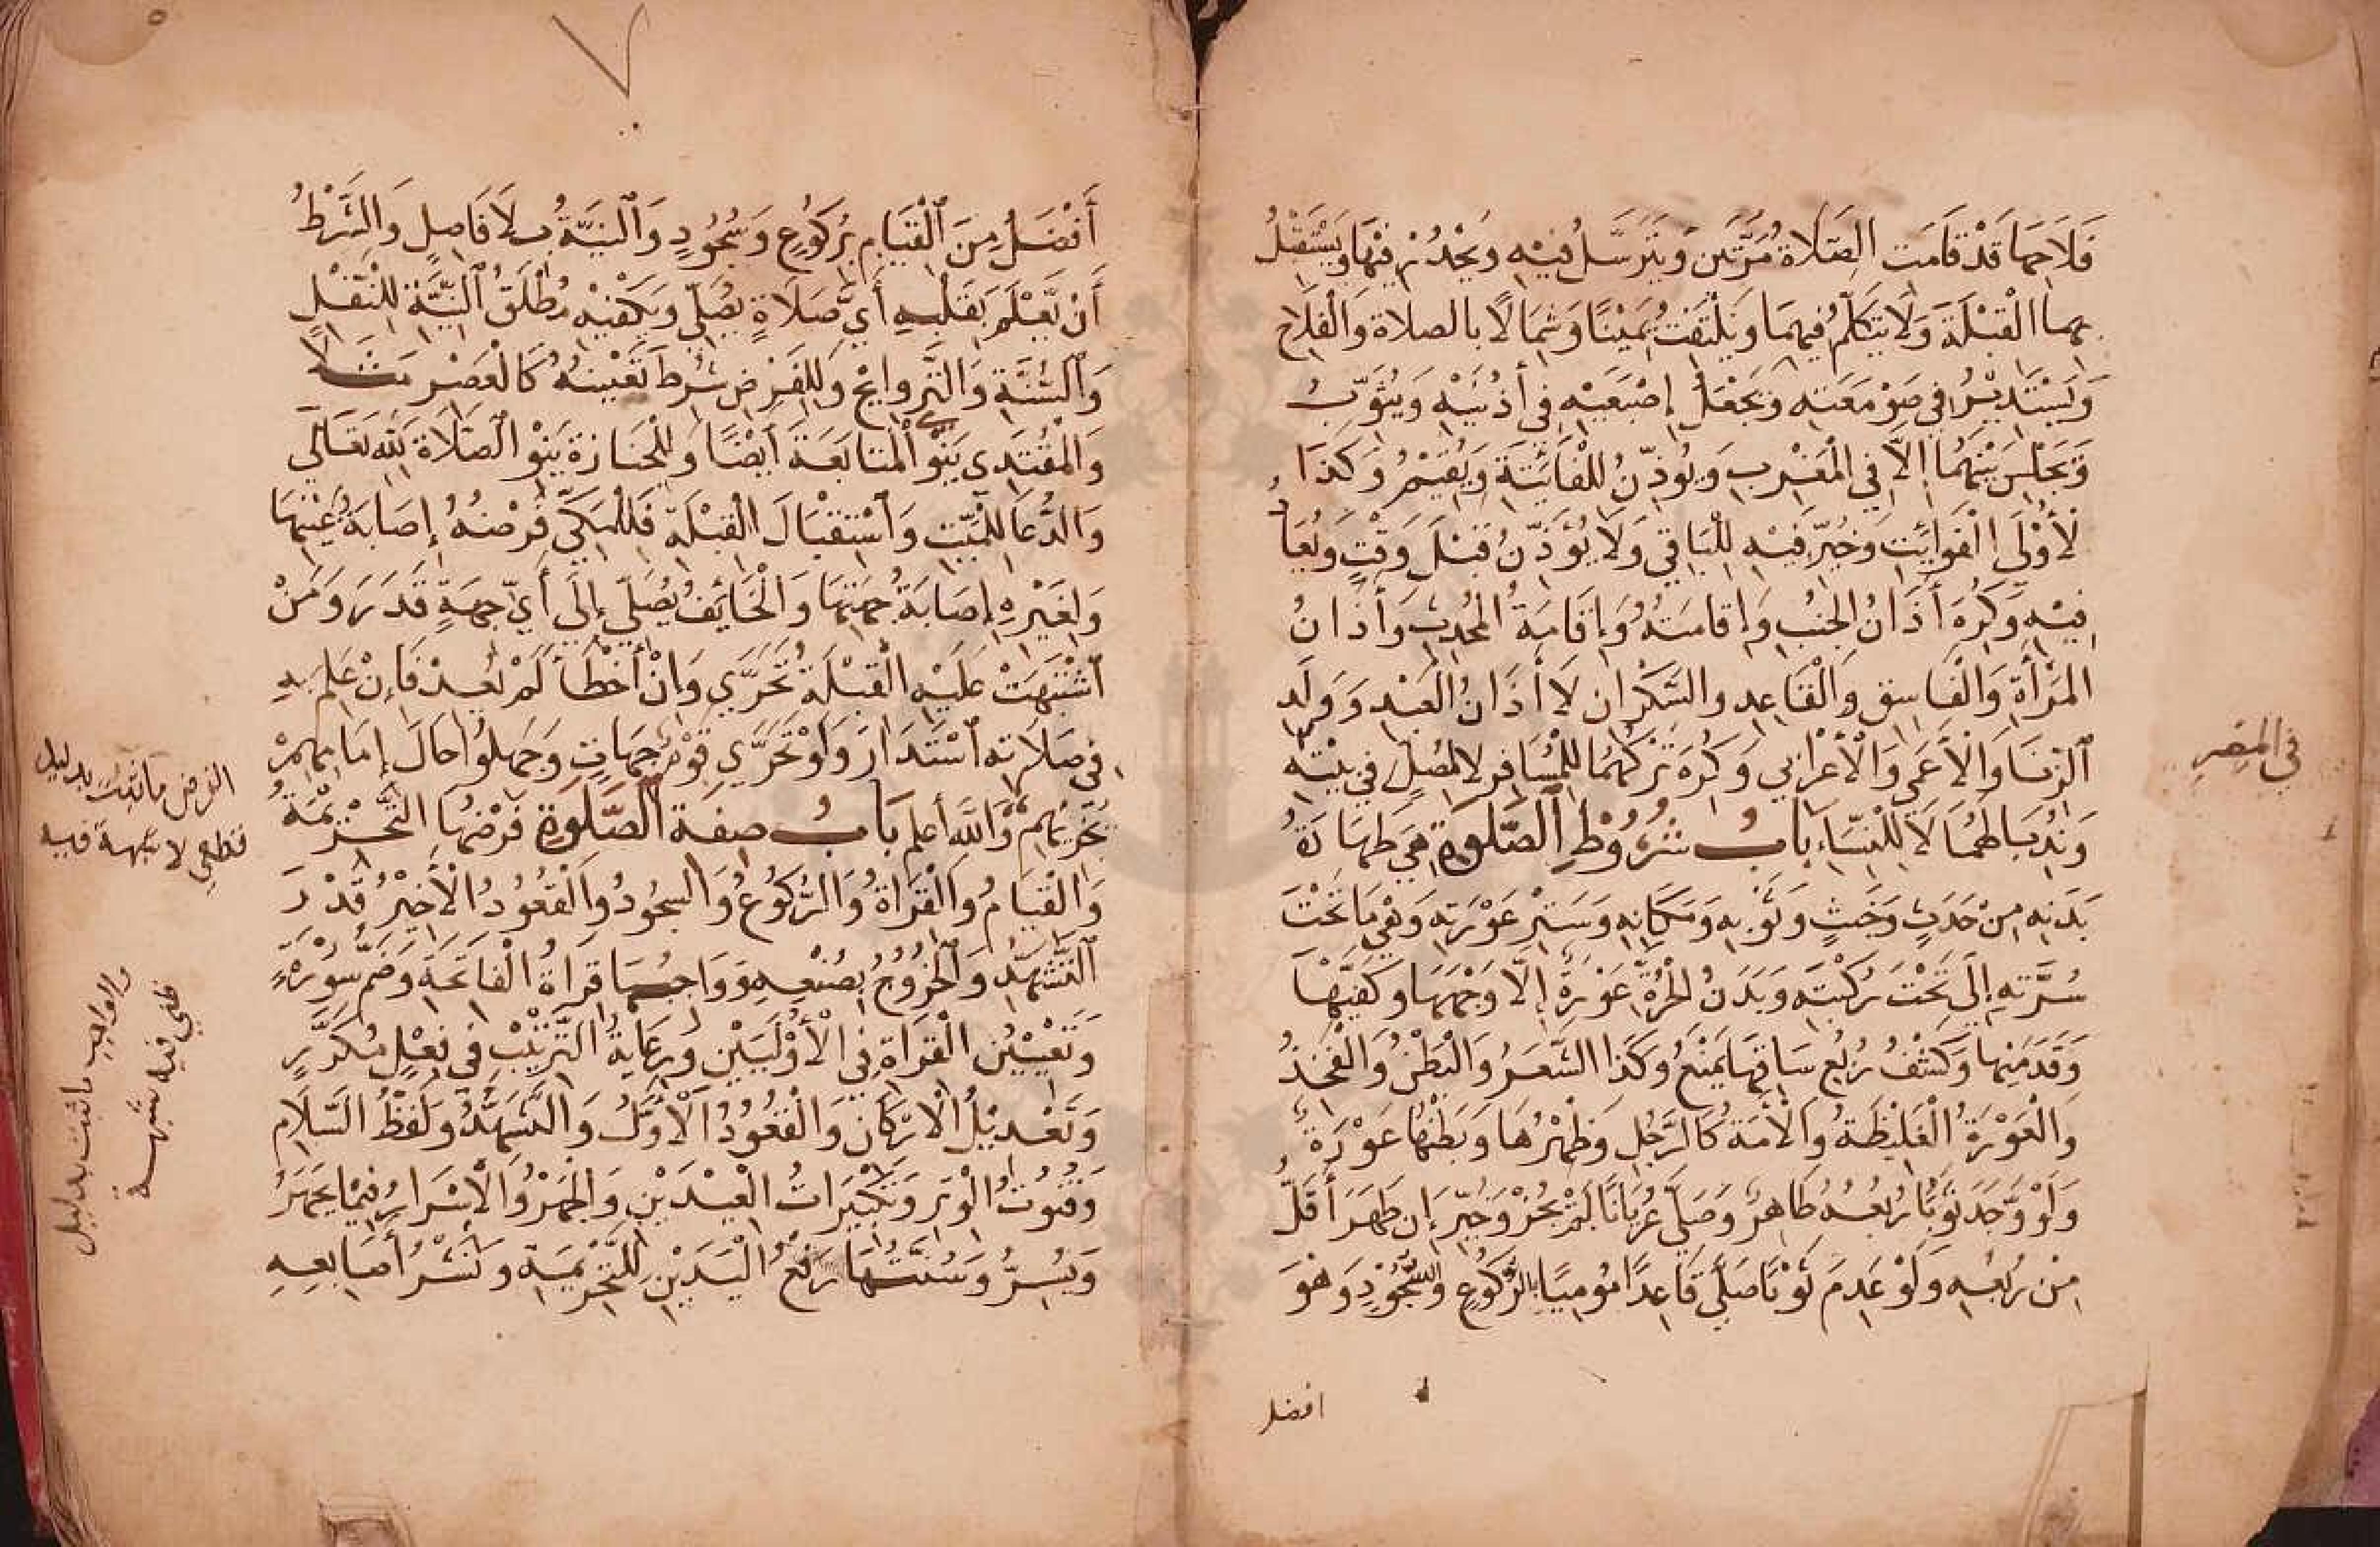 فَلَاحِهَا قَدْ قَامَتِ الصَّلَاةُ مَرَّتَيْنِ وَيَتَرَسَّلُ فِيْهِ وَيَحْدُرُ فِيْهَا وَيَسْتَقْبِلُ
بِهِمَا الْقِبْلَةَ وَلَا يَتَكَلَّمُ فِيهِمَا وَيَلْتَفِتُ يَمِيْنًا وَشِمَالًا بِالصلاة وَالْفَلَاحِ
وَيَسْتَدِيْرُ فِي صَوْمَعَتِهِ وَيَجْعَلُ إِصْبَعَيْهِ فِي أُذْنَيْهِ وَيُثَوِّبُ
وَيَجْلِسُ بَيْنَهُمَا إِلَّا فِي الْمَغْرِبِ وَيُؤَذِّنُ لِلْفَائِتَةِ وَيُقِيْمُ وَكَذَا
لِأُوْلَى الْفَوَائِتِ وَخُيِّرَ فِيْهِ لِلْبَاقِي وَلَا يُؤَذِّنُ قَبْلَ وَقْتٍ وَيُعَادُ
فِيْهِ وَكُرِهَ أَذَانُ الْجُنُبِ وَإِقَامَتُهُ وَإِقَامَةُ الْمُحْدِثِ وَأَذَانُ
الْمَرْأَةِ وَالْفَاسِقِ وَالْقَاعِدِ وَالسَّكْرَانِ لَا أَذَانُ الْعَبْدِ وَوَلَدِ
الزِّنَا وَالْأَعْمَى وَالْأَعْرَابِي وَكُرِهَ تَرْكُهُمَا لِلْمُسَافِرِ لَا لِمُصَلٍّ فِي بَيْتِهِ
فِي الْمِصْرِ
وَنُدِبَا لَهُمَا لَا لِلْنِسَاءِ بَابُ شُرُوْطِ الصَّلٰوةِ هِيَ طَهَارَةُ
بَدَنِهِ مِنْ حَدَثٍ وَخَبَثٍ وَثَوْبِهِ وَمَكَانِهِ وَسَتْرُ عَوْرَتِهِ وَهْيَ مَا تَحْتَ
سُرَّتِهِ إِلَى تَحْتَ رُكْبَتِهِ وَبَدَنُ الْحُرَّةِ عَوْرَةٌ إِلَّا وَجْهَهَا وَكَفَّيْهَا
وَقَدَمَيْهَا وَكَشْفُ رُبُعِ سَاقِهَا يَمْنَعُ وَكَذَا الشَّعَرُ وَالْبَطْنُ وَالْفَخِذُ
وَالْعَوْرَةُ الْغَلِيْظَةُ وَالْأَمَةُ كَالرَّجُلِ وَظَهْرُهَا وَبَطْنُهَا عَوْرَةٌ
وَلَوْ وَجَدَ ثَوْبًا رُبُعُهُ طَاهِرٌ وَصَلَّى عُرْيَانًا لَمْ يَجُزْ وَخُيِّرَ إِنْ طَهَرَ أَقَلُّ
مِنْ رُبُعِهِ وَلَوْ عَدِمَ ثَوْبًا صَلَّى قَاعِدًا مُوْمِيًا بِالرُّكُوعِ وَالسُّجُوْدِ وَهْوَ
افضل
أَفْضَلُ مِنَ الْقِيَامِ بِرُكُوْعٍ وَسُجُوْدٍ وَالْنِيَّةُ بِلَا فَاصِلٍ وَالشَّرْطُ
أَنْ يَعْلَمَ بِقَلْبِهِ أَيَّ صَلَاةٍ يُصَلِّي وَيَكْفِيْهِ مُطْلَقُ النِّيَّةِ لِلْنَّفْلِ
وَالسُّنَّةِ وَالتَّرَوايْحِ وَلِلْفَرْضِ شُرِطَ تَعْيِيْنُهُ كَالْعَصْرِ مَثَلًا
وَالْمُقْتَدِي يَنْوِي الْمُتَابَعَةَ أَيْضًا وَلِلْجَنَازَةِ يَنْوِ الصَّلَاةَ لِلَّهِ تَعَالَى
وَالدُّعَا لِلْمَيِّتِ وَاسْتِقْبَالَ الْقِبْلَةِ فَلِلْمَكِّيِّ فَرْضُهُ إِصَابَةُ عَيْنِهَا
وَلِغَيْرِهِ إِصَابَةُ جِهَتِهَا وَالْخَائِفُ يُصَلِّي إِلَى أَيِّ جِهَةٍ قَدَرَ وَمَنْ
اشْتَبَهَتْ عَلَيْهِ الْقِبْلَةُ تَحَرَّى وَإِنْ أَخْطَأَ لَمْ يُعِدْ فَإِنْ عَلِمَ بِهِ
فِي صَلَاتِهِ اسْتَدَارَ وَلَوْ تَحَرَّى قَوْمٌ جِهَاتٍ وَجَهِلُوا حَالَ إِمَامِهِمْ
تُجْزِيْهِمْ وَاللَّهُ أعلم بَابُ صفة الصَّلٰوةِ فَرْضُهَا التَّحْرِيْمَةُ
وَالْقِيَامُ وَالْقِرَاةُ وَالرُّكُوْعُ وَالسجُودُ وَالْقُعُوْدُ الْأَخِيْرُ قَدْرَ
التَّشَهُّدِ وَالْخُرُوْجُ بِصُنْعِهِ وَوَاجِبُهَا قِرَاةُ الْفَاتِحَةِ وَضَمُّ سُوْرَةٍ
وَتَعْيِيْنُ الْقِرَاةِ فِي الْأُوْلَيَيْنِ وَرِعَايَةُ التَّرْتِيْبِ فِي فِعْلٍ مُكَرَّرٍ
وَتَعْدِيْلُ الْارْكَانِ وَالْقُعُوْدُ الْأَوَّلُ وَالتَّشَهُّدُ وَلَفْظُ السَّلَامِ
وَقُنُوْتُ الْوِتْرِ وَتَكْبِيْرَاتُ الْعِيْدَيْنِ وَالْجَهْرُ وَالْأِسْرَارُ فِيْمَا يَجْهَرُ
وَيُسِرُّ وَسُنَنُهَا رَفْعُ الْيَدَيْنِ لِلتَّحْرِيْمَةِ وَنَشْرُ أَصَابِعِهِ
الفرض ما ثبت بدليل
قطعي لا شبهة فيه
والواجب ما ثبت بدليل
ظني فيه شبهة